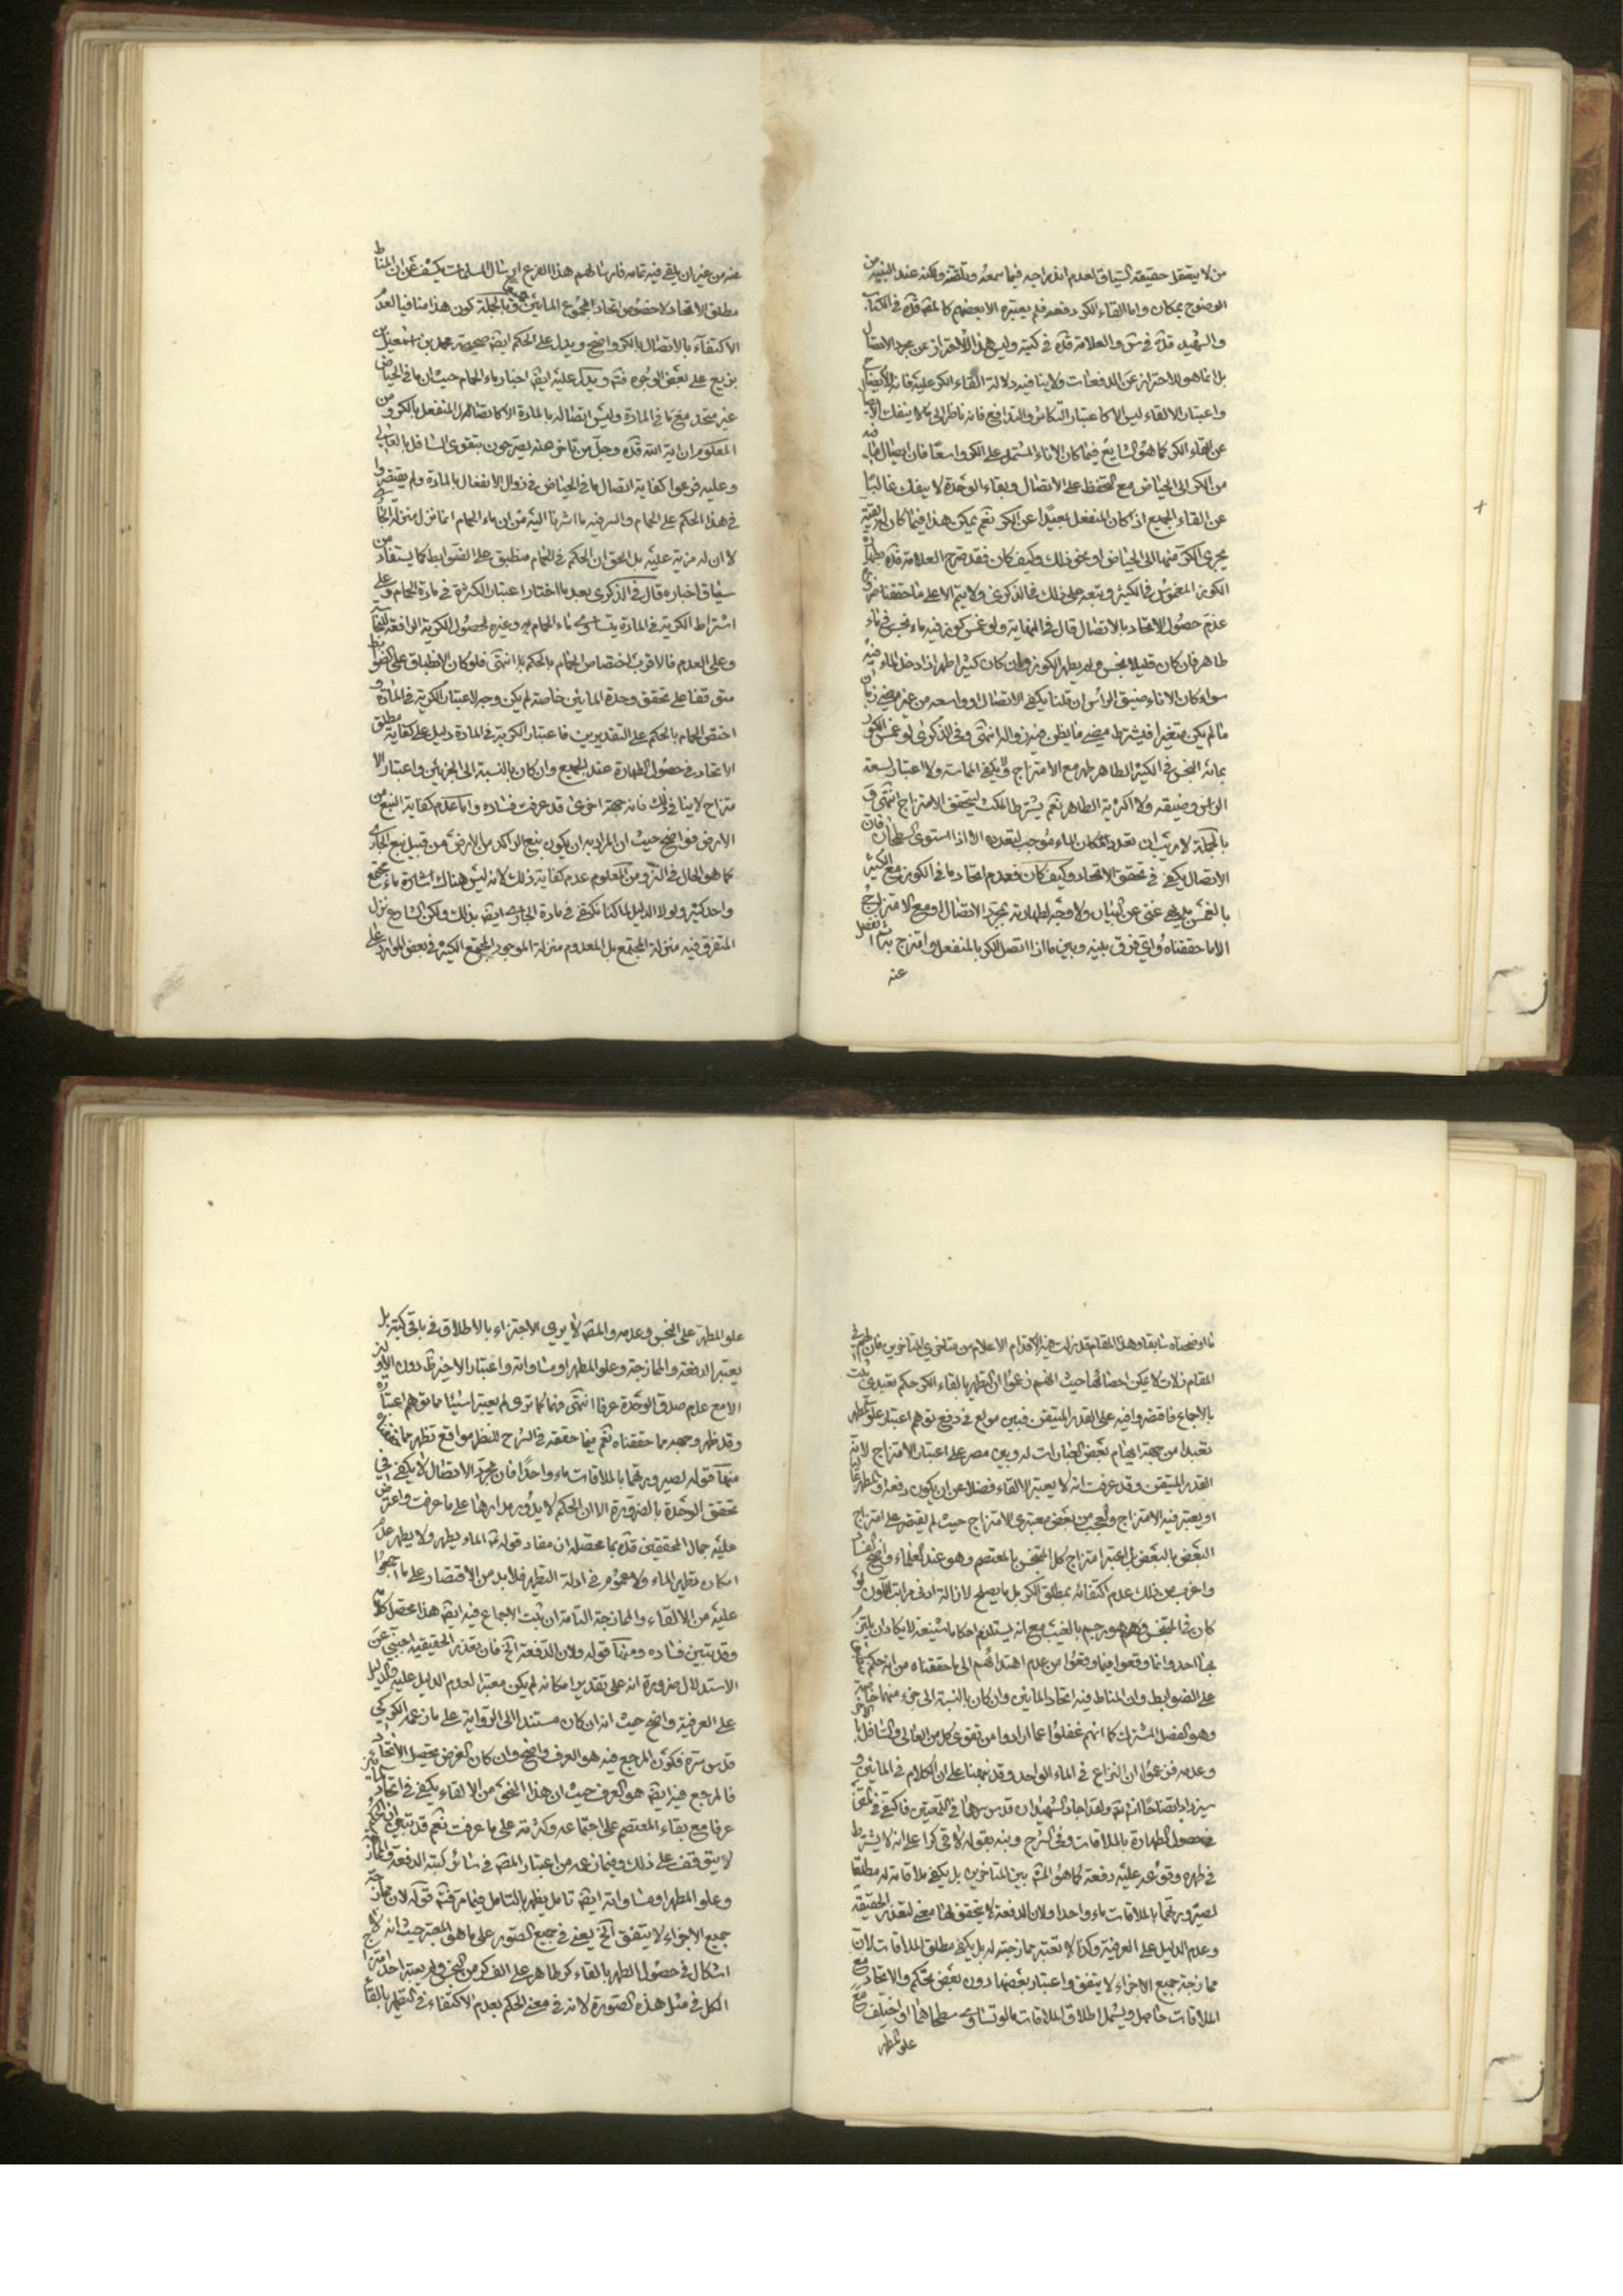 من لا يتعقل حقيقة السياق لعدم اندراجه فيما سمعه وتلقنه ولكنه عند التنبيه من
الوضوح بمكان واما القاء الكر دفعة فلم يعتبره الا بعضهم كالمص قده في الكتاب
والشهيد قده في س والعلامة قده في كتبه وليس هذا الا لاحتراز عن مجرد الاتصال
بل انما هو للاحتراز عن الدفعات ولا ينافيه دلالة القاء الكر عليه فانه
واعتبار الالقاء ليس الا كاعتبار التكاثر والتدافع فانه ناظر الى ما لا ينفك
عن القاء الكر كما هو الشايع فيما كان الاناء المشتمل على الكر واسعا فان ايصال ما فيه
من الكر الى الحياض مع التحفظ على الاتصال وبقاء الوحدة لا ينفك غالبا
عن القاء الجميع اذا كان المنفعل بعيدا عن الكر نعم يمكن هذا فيما كان
يجرى الكر منها الى الحياض او نحو ذلك وكيف كان فقد صرح العلامة قده بطهارة
الكوز المغموس في الكثير وتبعه على ذلك في الذكرى ولا يتم الا على ما حققنا من
عدم حصول الاتحاد بالاتصال قال في النهاية ولو غمس كوز فيه ماء نجس في ماء
طاهر فان كان قليلا نجس ولم يطهر الكوز وان كان كثيرا طهر اذا دخل الماء فيه
سواء كان الاناء ضيق الراس ان قلنا يكفي الاتصال او واسعه من غير مضي زمان
ما لم يكن متغيرا فيشترط مضي ما يظن فيه زواله انتهى وفي الذكرى لو غمس الكوز
بمائه النجس في الكثير الطاهر طهر مع الامتزاج ولا يكفي المماسة ولا اعتبار لسعة
الراس وضيقه ولا اكثرية الطاهر نعم يشترط المكث ليتحقق الامتزاج انتهى و
بالجملة لا ريب ان تعدد المكان للماء موجب لتعدده الا اذا استوى السطحان فان
الاتصال يكفي في تحقق الاتحاد وكيف كان فعدم اتحاد ما في الكوز مع الكثير
بالغمس بديهي غني عن البيان ولا وجه لطهارته بمجرد الاتصال او مع الامتزاج
الا ما حققناه واي فرق بينه وبين ما اذا اتصل الكر بالمنفعل وامتزج به ثم انفصل
عنه
عنه من غير ان يلقى فيه تمامه فارسالهم هذا الفرع ارسال المسلمات يكشف عن ان المناط
مطلق الاتحاد لا خصوص اتحاد مجموع المائين وبالجملة كون هذا منافيا لعدم
الاكتفاء بالاتصال بالكر واضح ويدل على الحكم ايضا صحيحة محمد بن اسمعيل بن
بزيع على بعض الوجوه فيه ويدل عليه ايضا اخبار ماء الحمام حيث ان ما في الحياض
غير متحد مع ما في المادة وليس اتصاله بالمادة الا كاتصال المنفعل بالكر ومن
المعلوم ان اية الله قده وجل من تاخر عنه يصرحون بتقوى السافل بالعالي
وعليه فرعوا كفاية اتصال ما في الحياض في زوال الانفعال بالمادة ولم يقتصروا
في هذا الحكم على الحمام والسر فيه ما اشرنا اليه من ان ماء الحمام انما نزل منزلة الجاري
لا ان له مزية عليه بل الحق ان الحكم في الحمام منطبق على الضوابط كما يستفاد من
سياق اخباره قال في الذكرى بعد ما اختار اعتبار الكثرة في مادة الحمام وعلى
اشتراط الكرية في المادة يتساوى ماء الحمام وغيره لحصول الكرية الرافعة للنجاسة
وعلى العدم فالاقرب اختصاص الحمام بالحكم انتهى فلو كان الانطباق على الضوابط
متوقفا على تحقق وحدة المائين خاصة لم يكن وجه لاعتبار الكرية في المادة و
اختص الحمام بالحكم على التقديرين فاعتبار الكرية في المادة دليل على كفاية مطلق
الاتحاد في حصول الطهارة عند الجميع وان كان بالنسبة الى الجزئين واعتبار الا
متزاج لا ينافي ذلك فانه جهة اخرى قد عرفت فساده واما عدم كفاية النبع من
الارض فواضح حيث ان المراد به ان يكون ينبع الراكد من الارض من قبيل نبع الجاري
كما هو الحال في النز ومن المعلوم عدم كفاية ذلك لانه ليس هناك اشارة ماء مجتمع
واحد كثير ولولا الدليل لما كنا نكتفي في مادة الجاري ايضا بذلك ولكن الشارع نزل
المتفرق فيه منزلة المجتمع بل المعدوم منزلة الموجود المجتمع الكثير في بعض الموارد على
ما اوضحناه سابقا وهذا المقام قد زلت فيه الاقدام الاعلام من متاخري المتاخرين فان لهم في
المقام زلات لا يمكن احصائها حيث انهم زعموا ان التطهر بالقاء الكر حكم تعبدي ثبت
بالاجماع فاقتصروا فيه على القدر المتيقن فبين مولع في دفع توهم اعتبار علو المطهر
تعبدا من جهة ايهام بعض العبارات له وبين مصر على اعتبار الامتزاج لانه
القدر المتيقن وقد عرفت انه لا يعتبر الالقاء فضلا عن ان يكون دفعة
او يعتبر فيه الامتزاج والعجب من بعض معتبري الامتزاج حيث لم يقتصر على امتزاج
البعض بالبعض بل اعتبر امتزاج كل المتنجس بالمعتصم وهو عند العلماء واضح الفساد
واغرب من ذلك عدم اكتفائه بمطلق الكر بل بما يصلح لازالة ادنى مراتب اللون لو
كان في المتنجس وهو رجم بالغيب مع انه يستلزم احكاما شنيعة لا يكاد ان يلتزم
بها احد وانما وقعوا فيما وقعوا من عدم اهتدائهم الى ما حققناه من انه حكم
على الضوابط وان المناط فيه اتحاد المائين وان كان بالنسبة الى جزء منهما خاصة
وهو الفصل المشترك كما انهم غفلوا عما ارادوا من تقوى كل من العالي والسافل بالاخر
وعدمه فزعموا ان النزاع في الماء الواحد وقد نبهنا على ان الكلام في المائين و
سيزداد ايضاحا ان شاء الله ولقد اجاد الشهيدان قدس سرهما في اللمعتين فاكتفى في المتن
في حصول الطهارة بالملاقات وفي الشرح ونبه بقوله لاقى كرا على انه لا يشترط
في طهره وقوعه عليه دفعة كما هو المشهور بين المتاخرين بل يكفي ملاقاته له مطلقا
لصيرورتهما بالملاقات ماء واحدا ولان الدفعة لا يتحقق لها معنى لتعذر الحقيقة
وعدم الدليل على العرفية وكذا لا تعتبر ممازجته له بل يكفي مطلق الملاقات لان
ممازجة جميع الاجزاء لا يتفق واعتبار بعضها دون بعض تحكم والاتحاد مع
الملاقات حاصل ويشمل اطلاق الملاقات ما لو تساوى سطحاهما او اختلف مع
علو المطهر
علو المطهر على النجس وعدمه والمص لا يرى الاجتزاء بالاطلاق في باقي كتبه بل
يعتبر الدفعة والممازجة وعلو المطهر او مساواته واعتبار الاخير ظ دون الاولين
الا مع عدم صدق الوحدة عرفا انتهى فهما كما ترى لم يعتبرا شيئا مما توهم اعتباره
وقد ظهر وجهه مما حققناه نعم فيما حققه في الشرح للنظر مواقع تظهر
منها قوله لصيرورتهما بالملاقات ماء واحدا فان مجرد الاتصال لا يكفي في
تحقق الوحدة بالضرورة الا ان الحكم لا يدور مدارها على ما عرفت واعترض
عليه جمال المحققين قده بما محصله ان مفاد قوله ع الماء يطهر ولا يطهر عدم
امكان تطهير الماء ولا عموم في ادلة التطهر فلا بد من الاقتصار على ما اجمعوا
عليه من الالقاء والممازجة التامة ان ثبت الاجماع فيه ايضا هذا محصل كلامه
وقد تبين فساده ومنها قوله ولان الدفعة الخ فان تعذر الحقيقية اجنبي عن
الاستدلال ضرورة انه على تقدير امكانه لم يكن معتبرا لعدم الدليل عليه والدليل
على العرفية واضح حيث انه ان كان مستندا الى الرواية على ما زعمه الكركي
قدس سره فكون المرجع فيه هو العرف واضح وان كان الغرض تحصيل الاتحاد
فالمرجع فيه ايضا هو العرف حيث ان هذا النحو من الالقاء يكفي في اتحاد
عرفا مع بقاء المعتصم على اجتماعه وكثرته على ما عرفت نعم قد تبين ان الحكم
لا يتوقف على ذلك وفيما زعمه من اعتبار المص في سائر كتبه الدفعة والممازجة
وعلو المطهر او مساواته ايضا تامل يظهر بالتامل فيما مر فيه قوله لان ممازجة
جميع الاجزاء لا يتفق الخ يعني في جميع الصور على ما هو المعتبر حيث انه لا
اشكال في حصول الطهر بالقاء كر طاهر على الف كر من النجس ولم يعتبر احد امتزاج
الكل في مثل هذه الصورة لانه في معنى الحكم بعدم الاكتفاء في التطهر بالقاء